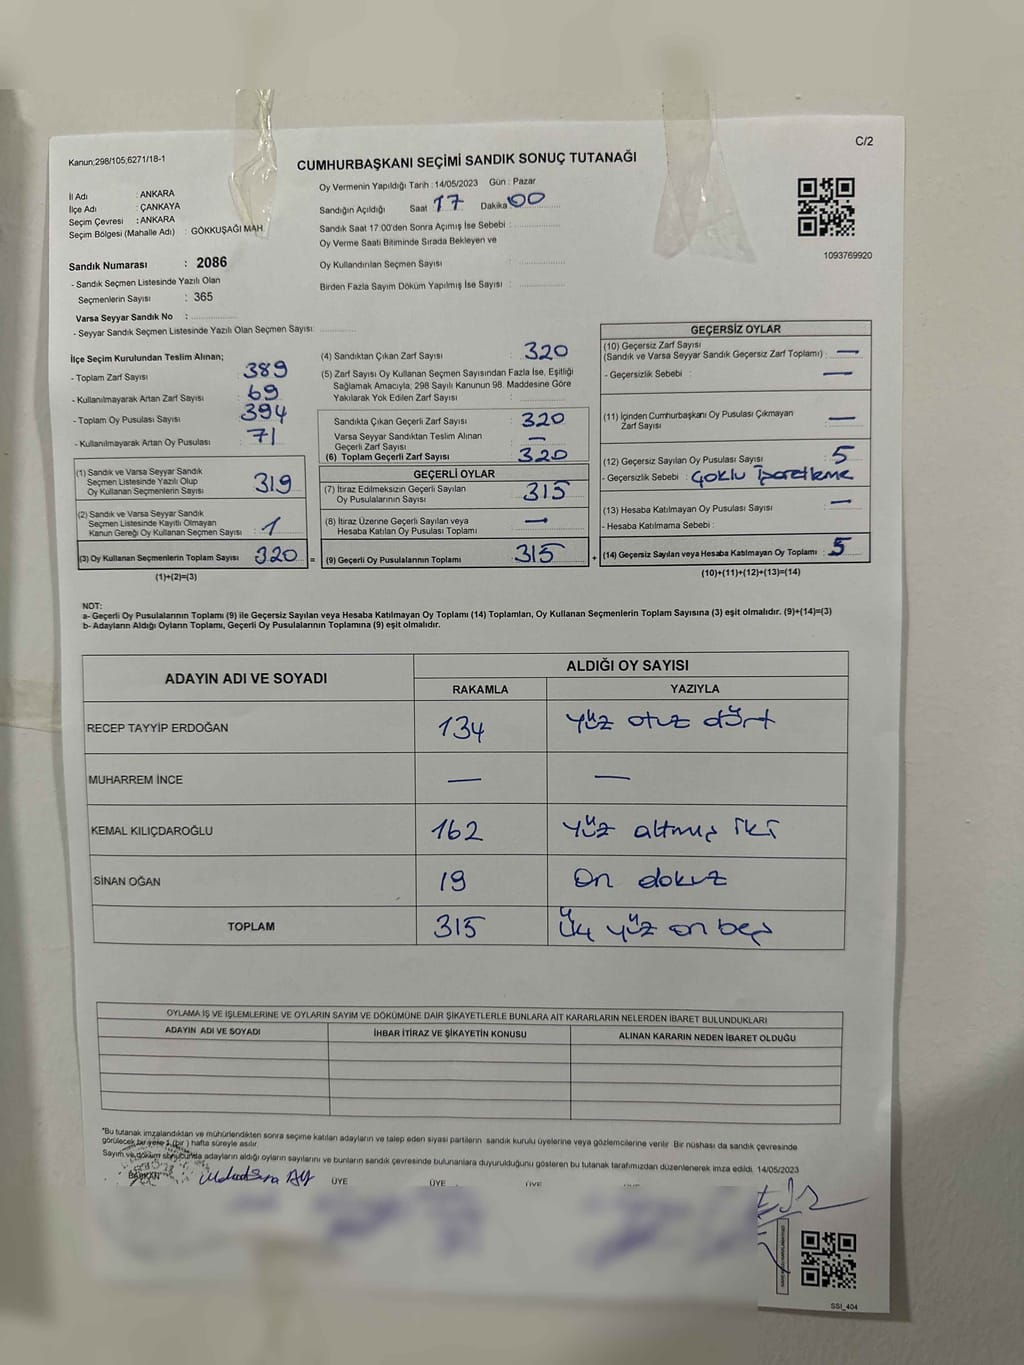 Kanun;298/105;6271/18-1
C/2
CUMHURBAŞKANI SEÇİMİ SANDIK SONUÇ TUTANAĞI
İl Adı : ANKARA
İlçe Adı : ÇANKAYA
Seçim Çevresi : ANKARA
Seçim Bölgesi (Mahalle Adı) : GÖKKUŞAĞI MAH
Sandık Numarası : 2086
- Sandık Seçmen Listesinde Yazılı Olan
Seçmenlerin Sayısı : 365
Varsa Seyyar Sandık No :
- Seyyar Sandık Seçmen Listesinde Yazılı Olan Seçmen Sayısı:
Oy Vermenin Yapıldığı Tarih : 14/05/2023 Gün : Pazar
Sandığın Açıldığı Saat 17 Dakika 00
Sandık Saat 17:00'den Sonra Açımış İse Sebebi :
Oy Verme Saati Bitiminde Sırada Bekleyen ve
Oy Kullandırılan Seçmen Sayısı :
Birden Fazla Sayım Döküm Yapılmış İse Sayısı :
1093769920
İlçe Seçim Kurulundan Teslim Alınan;
- Toplam Zarf Sayısı : 389
- Kullanılmayarak Artan Zarf Sayısı : 69
- Toplam Oy Pusulası Sayısı : 394
- Kullanılmayarak Artan Oy Pusulası : 71
(1) Sandık ve Varsa Seyyar Sandık
Seçmen Listesinde Yazılı Olup
Oy Kullanan Seçmenlerin Sayısı : 319
(2) Sandık ve Varsa Seyyar Sandık
Seçmen Listesinde Kayıtlı Olmayan
Kanun Gereği Oy Kullanan Seçmen Sayısı : 1
(3) Oy Kullanan Seçmenlerin Toplam Sayısı : 320 =
(1)+(2)=(3)
(4) Sandıktan Çıkan Zarf Sayısı : 320
(5) Zarf Sayısı Oy Kullanan Seçmen Sayısından Fazla İse, Eşitliği
Sağlamak Amacıyla; 298 Sayılı Kanunun 98. Maddesine Göre
Yakılarak Yok Edilen Zarf Sayısı :
Sandıkta Çıkan Geçerli Zarf Sayısı : 320
Varsa Seyyar Sandıktan Teslim Alınan
Geçerli Zarf Sayısı : —
(6) Toplam Geçerli Zarf Sayısı : 320
GEÇERLİ OYLAR
(7) İtiraz Edilmeksizin Geçerli Sayılan
Oy Pusulalarının Sayısı : 315
(8) İtiraz Üzerine Geçerli Sayılan veya
Hesaba Katılan Oy Pusulası Toplamı : —
(9) Geçerli Oy Pusulalarının Toplamı : 315 +
GEÇERSİZ OYLAR
(10) Geçersiz Zarf Sayısı
(Sandık ve Varsa Seyyar Sandık Geçersiz Zarf Toplamı) : —
- Geçersizlik Sebebi : —
(11) İçinden Cumhurbaşkanı Oy Pusulası Çıkmayan
Zarf Sayısı : —
(12) Geçersiz Sayılan Oy Pusulası Sayısı : 5
- Geçersizlik Sebebi : Çoklu İşaretleme
(13) Hesaba Katılmayan Oy Pusulası Sayısı : —
- Hesaba Katılmama Sebebi :
(14) Geçersiz Sayılan veya Hesaba Katılmayan Oy Toplamı : 5
(10)+(11)+(12)+(13)=(14)
NOT:
a- Geçerli Oy Pusulalarının Toplamı (9) ile Geçersiz Sayılan veya Hesaba Katılmayan Oy Toplamı (14) Toplamları, Oy Kullanan Seçmenlerin Toplam Sayısına (3) eşit olmalıdır. (9)+(14)=(3)
b- Adayların Aldığı Oyların Toplamı, Geçerli Oy Pusulalarının Toplamına (9) eşit olmalıdır.
ADAYIN ADI VE SOYADI ALDIĞI OY SAYISI
RAKAMLA YAZIYLA
RECEP TAYYİP ERDOĞAN 134 Yüz otuz dört
MUHARREM İNCE — —
KEMAL KILIÇDAROĞLU 162 Yüz altmış iki
SİNAN OĞAN 19 On dokuz
TOPLAM 315 Üç yüz on beş
OYLAMA İŞ VE İŞLEMLERİNE VE OYLARIN SAYIM VE DÖKÜMÜNE DAİR ŞİKAYETLERLE BUNLARA AİT KARARLARIN NELERDEN İBARET BULUNDUKLARI
ADAYIN ADI VE SOYADI İHBAR İTİRAZ VE ŞİKAYETİN KONUSU ALINAN KARARIN NEDEN İBARET OLDUĞU
*Bu tutanak imzalandıktan ve mühürlendikten sonra seçime katılan adayların ve talep eden siyasi partilerin sandık kurulu üyelerine veya gözlemcilerine verilir. Bir nüshası da sandık çevresinde
görülecek bir yere 1 (bir ) hafta süreyle asılır.
Sayım ve döküm sonucunda adayların aldığı oyların sayılarını ve bunların sandık çevresinde bulunanlara duyurulduğunu gösteren bu tutanak tarafımızdan düzenlenerek imza edildi. 14/05/2023
BAŞKAN ÜYE ÜYE ÜYE
SSI_404